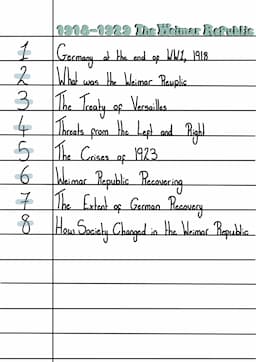 1918-1929 The Weimar Republic
1 Germany at the end of WW1, 1918
2 What was the Weimar Reuplic
3 The Treaty of Versailles
4 Threats from the Left and Right
5 The Crises of 1923
6 Weimar Republic Recovering
7 The Extent of German Recovery
8 How Society Changed in the Weimar Republic